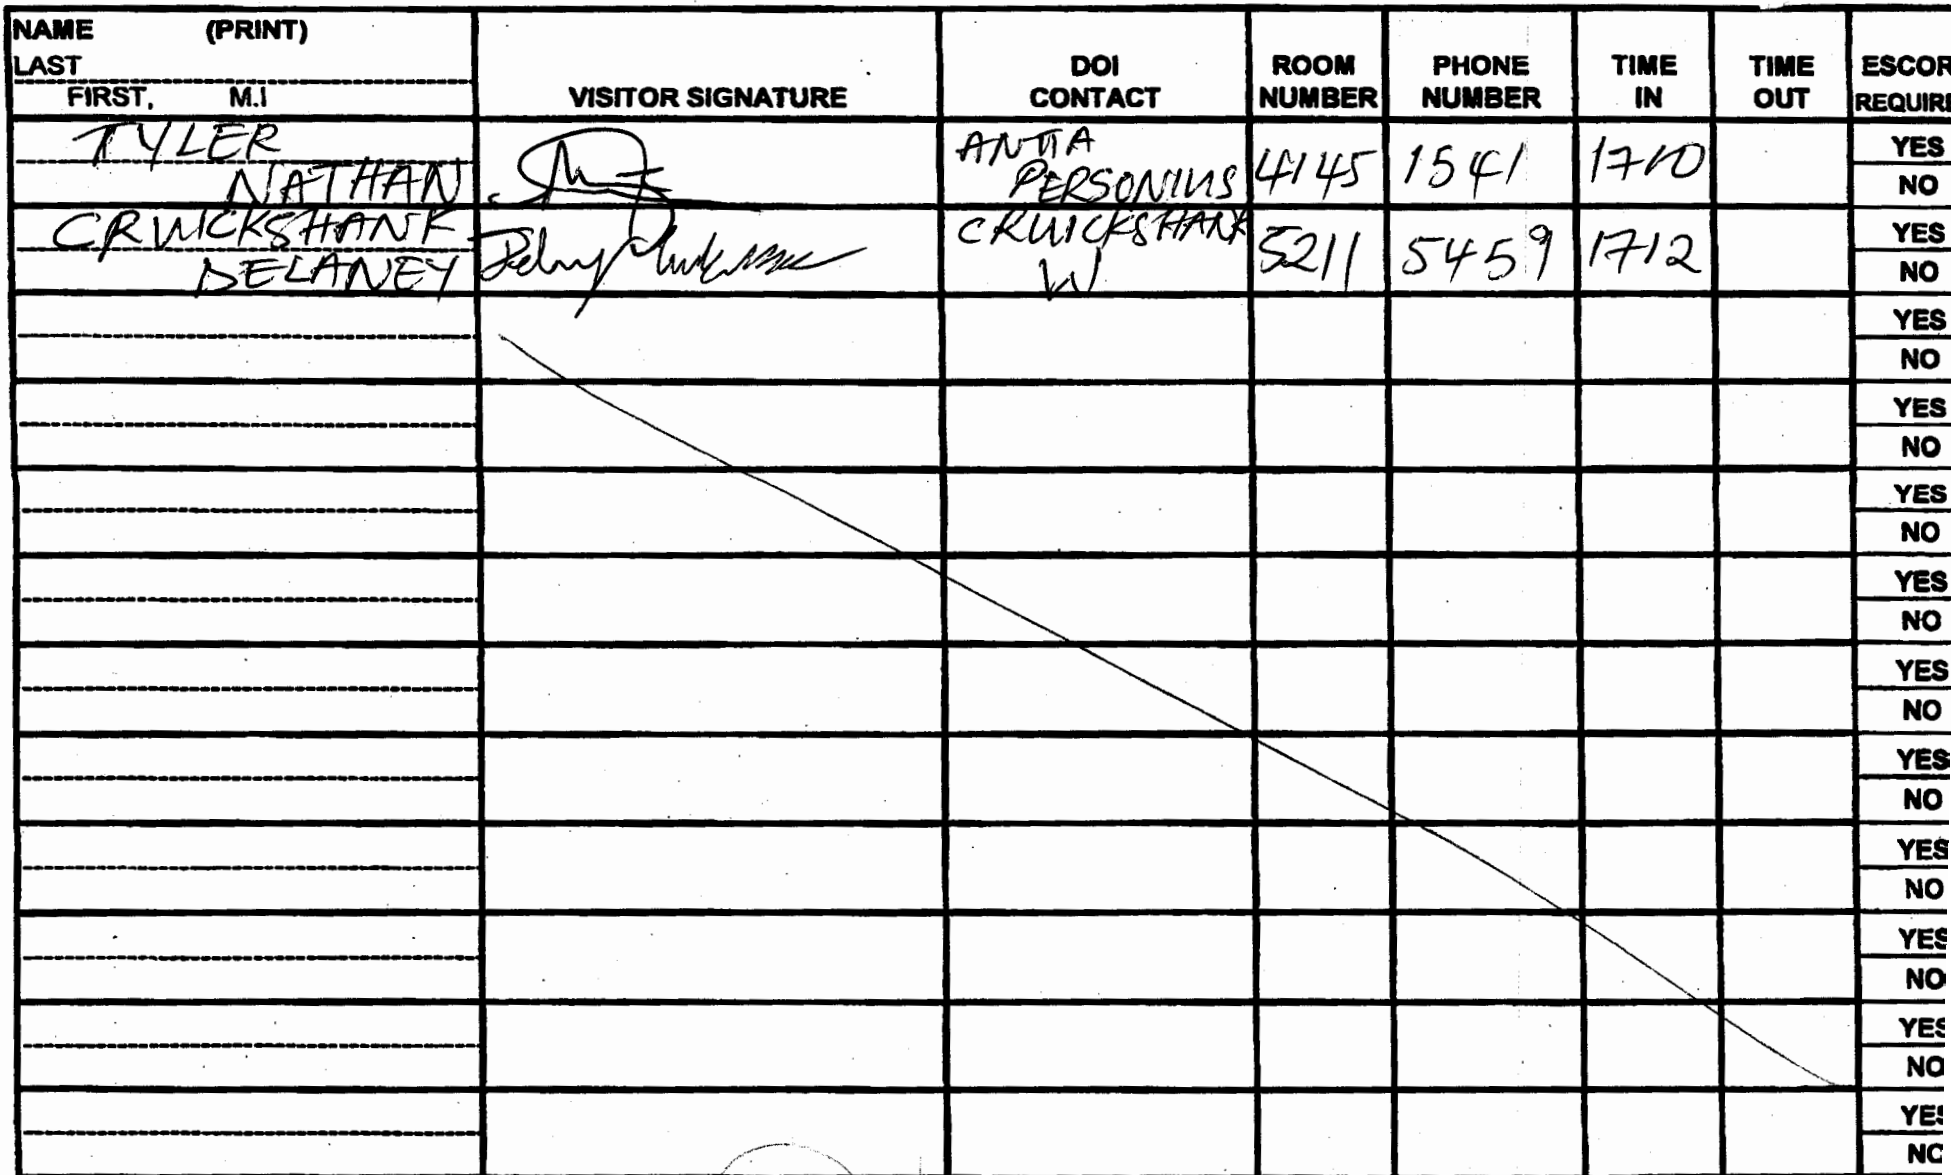 NAME (PRINT)
LAST
FIRST, M.I
VISITOR SIGNATURE
DOI
CONTACT
ROOM
NUMBER
PHONE
NUMBER
TIME
IN
TIME
OUT
ESCOR
REQUIRE
TYLER
NATHAN
ANITA
PERSONIUS
4145
1541
1710
YES
NO
CRUICKSHANK
DELANEY
CRUICKSHANK
W
5211
5459
1712
YES
NO
YES
NO
YES
NO
YES
NO
YES
NO
YES
NO
YES
NO
YES
NO
YES
NO
YES
NO
YES
NO